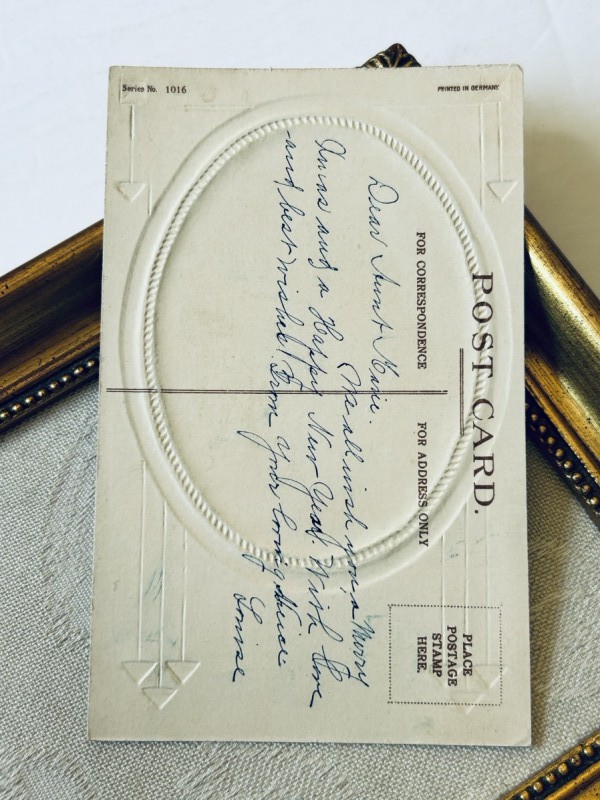 Series No. 1016
PRINTED IN GERMANY
POST CARD.
FOR CORRESPONDENCE
FOR ADDRESS ONLY
PLACE
POSTAGE
STAMP
HERE.
Dear Aunt
We all wish you a Merry
Xmas and a Happy New Year With love
and best wishes From your loving Niece
Louise